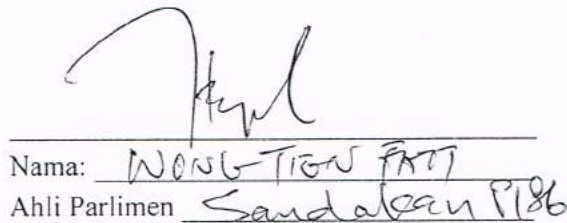 Nama: WONG TIEN FATT
Ahli Parlimen Sandakan P186